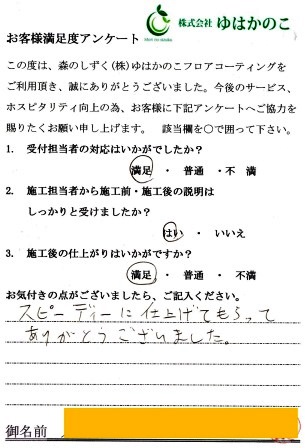 株式会社 ゆはかのこ
お客様満足度アンケート
この度は、森のしずく(株)ゆはかのこフロアコーティングを
ご利用頂き、誠にありがとうございました。今後のサービス、
ホスピタリティ向上の為、お客様に下記アンケートへご協力を
賜りたくお願い申し上げます。 該当欄を○で囲って下さい。
1. 受付担当者の対応はいかがでしたか?
満足 ・ 普通 ・ 不 満
2. 施工担当者から施工前・施工後の説明は
しっかりと受けましたか?
はい ・ いいえ
3. 施工後の仕上がりはいかがですか?
満足 ・ 普通 ・ 不満
お気付きの点がございましたら、ご記入ください。
スピーディーに仕上げてもらって
ありがとうございました。
御名前